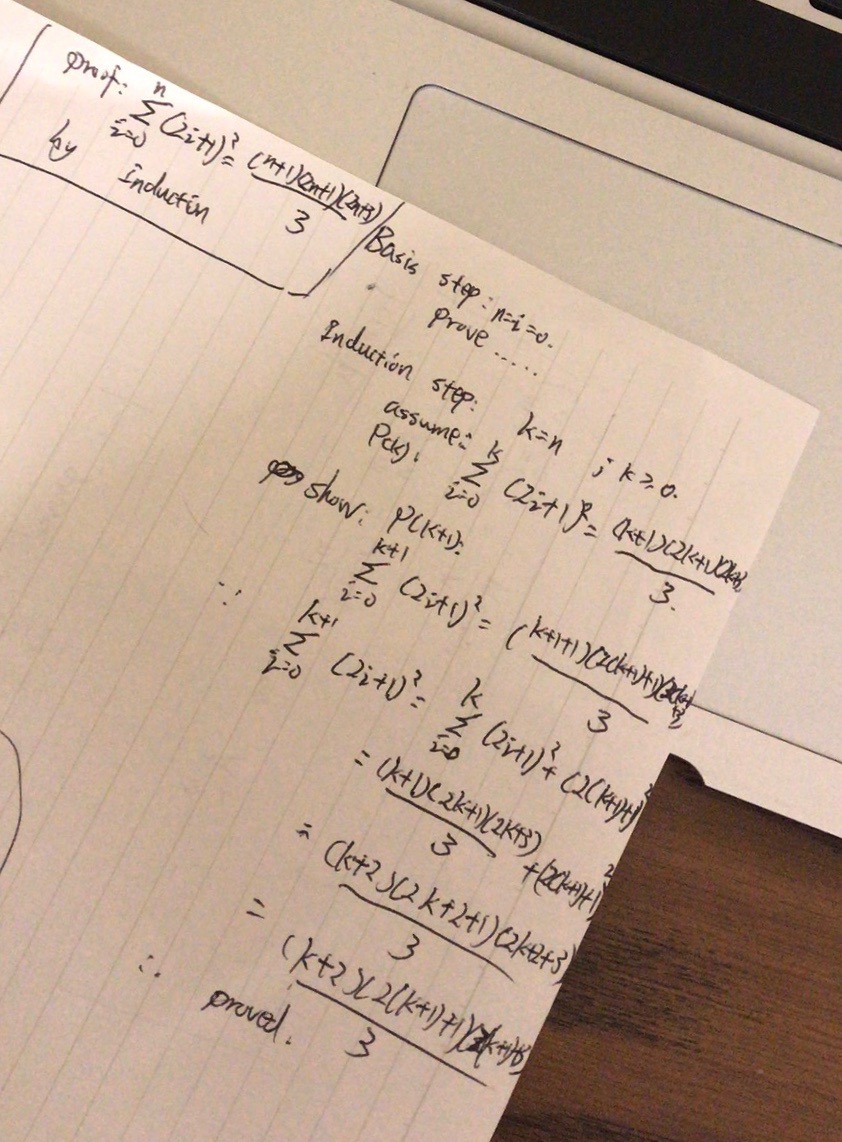 proof: ∑_{i=0}^{n} (2i+1)² = (n+1)(2n+1)(2n+3) / 3
by Induction
Basis step: n=i=0.
prove .....
Induction step: k=n ; k≥0.
assume:
P(k): ∑_{i=0}^{k} (2i+1)² = (k+1)(2k+1)(2k+3) / 3.
show: P(k+1):
∑_{i=0}^{k+1} (2i+1)² = (k+1+1)(2(k+1)+1)(2(k+1)+3) / 3
∵ ∑_{i=0}^{k+1} (2i+1)² = ∑_{i=0}^{k} (2i+1)² + (2(k+1)+1)²
= (k+1)(2k+1)(2k+3) / 3 + (2(k+1)+1)²
= (k+2)(2k+2+1)(2k+2+3) / 3
= (k+2)(2(k+1)+1)(2(k+1)+3) / 3
∴ proved.